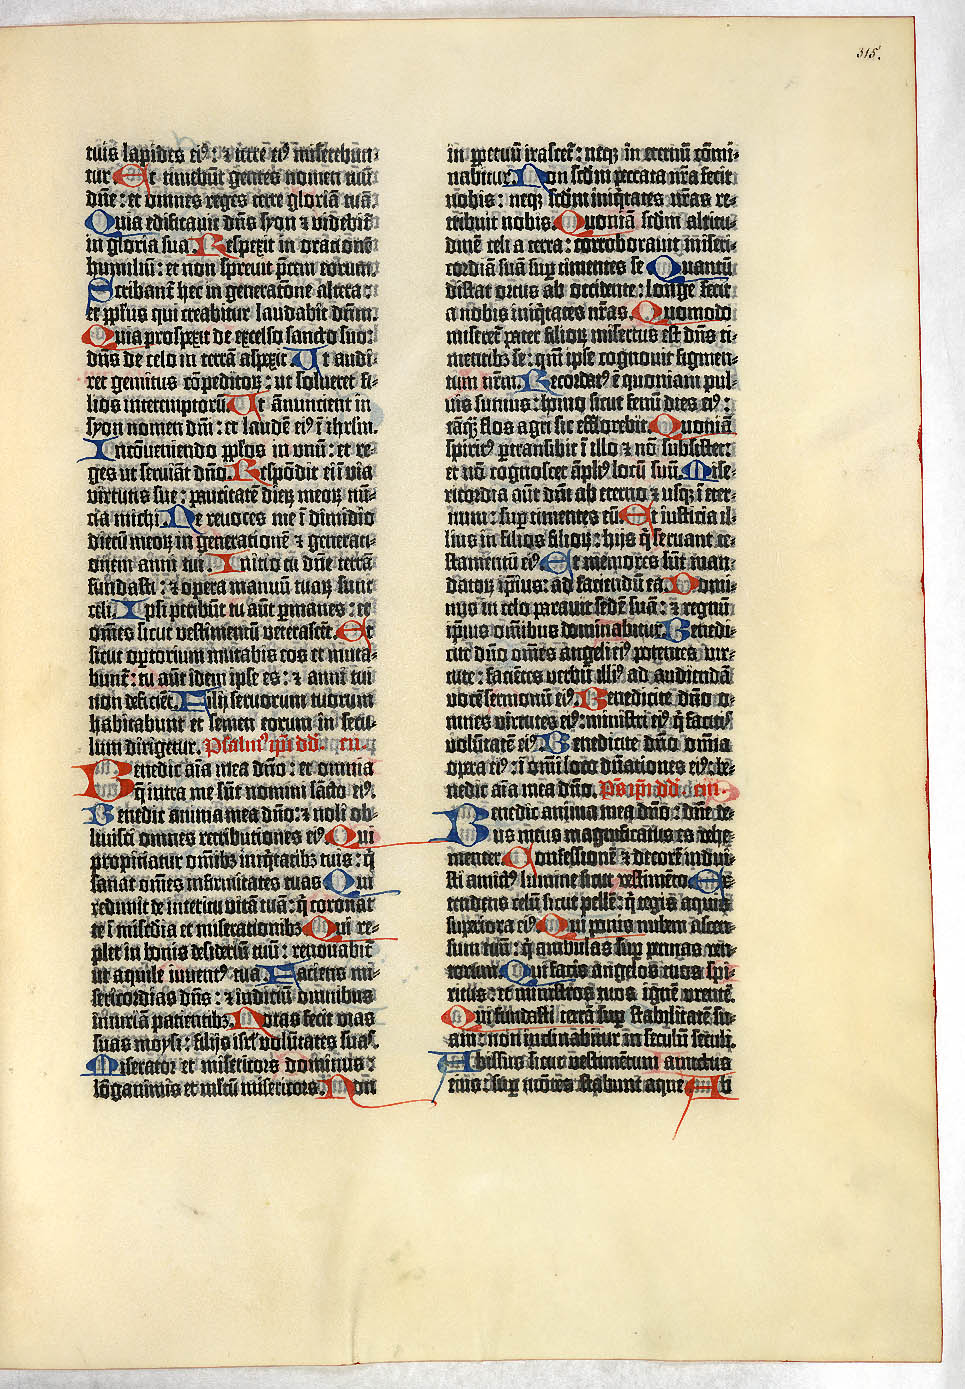 315.
tuis lapides ei⁹: ⁊ terrē ei⁹ miserebun-
tur Et timebūt gentes nomen tuū
dn̄e: et omnes reges terre gloriā tuā.
Quia edificauit dn̄s syon ⁊ videbit̄
in gloria sua. Respexit in orationē
humiliū: et non spreuit p̄cem eorum.
Scribant̄ hec in generatōne altera:
et ppl̄us qui creabitur laudabit dn̄m.
Quia prospexit de excelso sancto suo:
dn̄s de celo in terrā aspexit. Ut audi-
ret gemitus cōpeditoꝝ: ut solueret fi-
lios interemptorū Ut ānuncient in
syon nomen dn̄i: et laudē ei⁹ ī ihrl̄m.
In cōueniendo ppl̄os in unū: et re-
ges ut seruiāt dn̄o. Respōdit ei ī via
virtutis sue: paucitatē dieꝝ meoꝝ nū-
cia michi. Ne reuoces me ī dimidio
dierū meoꝝ in generationē ⁊ generati-
onem anni tui. Initio tu dn̄e terrā
fundasti: ⁊ opera manuū tuaꝝ sunt
celi. Ipsi peribūt tu aūt ꝑmanes: et
om̄es sicut vestimentū veterascēt. Et
sicut oꝑtorium mutabis eos et muta-
bunt̄: tu aūt idem ipse es: ⁊ anni tui
non deficiēt. Filij seruorum tuorum
habitabunt et semen eorum in secu-
lum dirigetur. Psalm⁹ ip̄i dd̄. cii.
Benedic aīa mea dn̄o: et omnia
q̄ intra me sūt nomini sācto ei⁹.
Benedic anima mea dn̄o: ⁊ noli ob-
liuisci omnes retributiones ei⁹. Qui
propiciatur om̄ibꝫ iniq̄tatibꝫ tuis: q̄
sanat om̄es infirmitates tuas Qui
redimit de interitu vitā tuā: q̄ coronat
te ī mīa et miserationibꝫ Qui re-
plet in bonis desideriū tuū: renouabit̄
ut aquile iuuent⁹ tua. Faciens mi-
sericordias dn̄s: ⁊ iudiciū omnibus
iniuriā patientibꝫ. Notas fecit vias
suas moysi: filijs isrl̄ volūtates suas.
Miserator et misericors dominus:
lōganimis et multū misericors. Non
in ꝑpetuū irascet̄: neqꝫ in eternū cōmi-
nabitur. Non scd̄m peccata nr̄a fecit
nobis: neqꝫ scd̄m iniq̄tates nr̄as re-
tribuit nobis. Quoniā scd̄m altitu-
dinē celi a terra: corroborauit miseri-
cordiā suā suꝑ timentes se Quantū
distat ortus ab occidente: longe fecit
a nobis iniq̄tates nr̄as. Quomodo
miseret̄ pater filioꝝ misertus est dn̄s ti-
mentibꝫ se: qm̄ ipse cognouit figmen-
tum nr̄m. Recordat⁹ ē quoniam pul-
uis sumus: homo sicut fenū dies ei⁹:
tāqꝫ flos agri sic efflorebit. Quoniā
spirit⁹ ꝑtransibit ī illo ⁊ nō subsistet:
et nō cognoscet āpli⁹ locū suū. Mise-
ricordia aūt dn̄i ab eterno ⁊ usqꝫ ī eter-
num: suꝑ timentes eū Et iusticia il-
lius in filios filioꝝ: hijs q̄ seruant te-
stamentū ei⁹ Et memores sūt man-
datoꝝ ip̄ius: ad faciendū ea. Domi-
nus in celo parauit sedē suā: ⁊ regnū
ip̄ius om̄ibus dominabitur. Benedi-
cite dn̄o om̄es angeli ei⁹ potentes vir-
tute: faciētes verbū illi⁹ ad audiendā
vocē sermonū ei⁹. Benedicite dn̄o o-
mnes virtutes ei⁹: ministri ei⁹ q̄ facitis
volūtatē ei⁹ Benedicite dn̄o om̄ia
opera ei⁹: ī om̄i loco dn̄ationes ei⁹. be-
nedic aīa mea dn̄o. Ps̄ ip̄i dd̄ ciii.
Benedic anima mea dn̄o: dn̄e de-
us meus magnificatus es vehe-
menter. Confessionē ⁊ decorē indui-
sti amict⁹ lumine sicut vestimēto Ex-
tendens celū sicut pellē: q̄ tegis aquis
superiora ei⁹ Qui ponis nubem ascen-
sum tuū: q̄ ambulas suꝑ pennas ven-
torum. Qui facis angelos tuos spi-
ritus: et ministros tuos ignē vrentē.
Qui fundasti terrā suꝑ stabilitatē su-
am: non inclinabitur in seculū seculi.
Abissus sicut vestimētum amictus
eius: suꝑ mōtes stabunt aque Ab